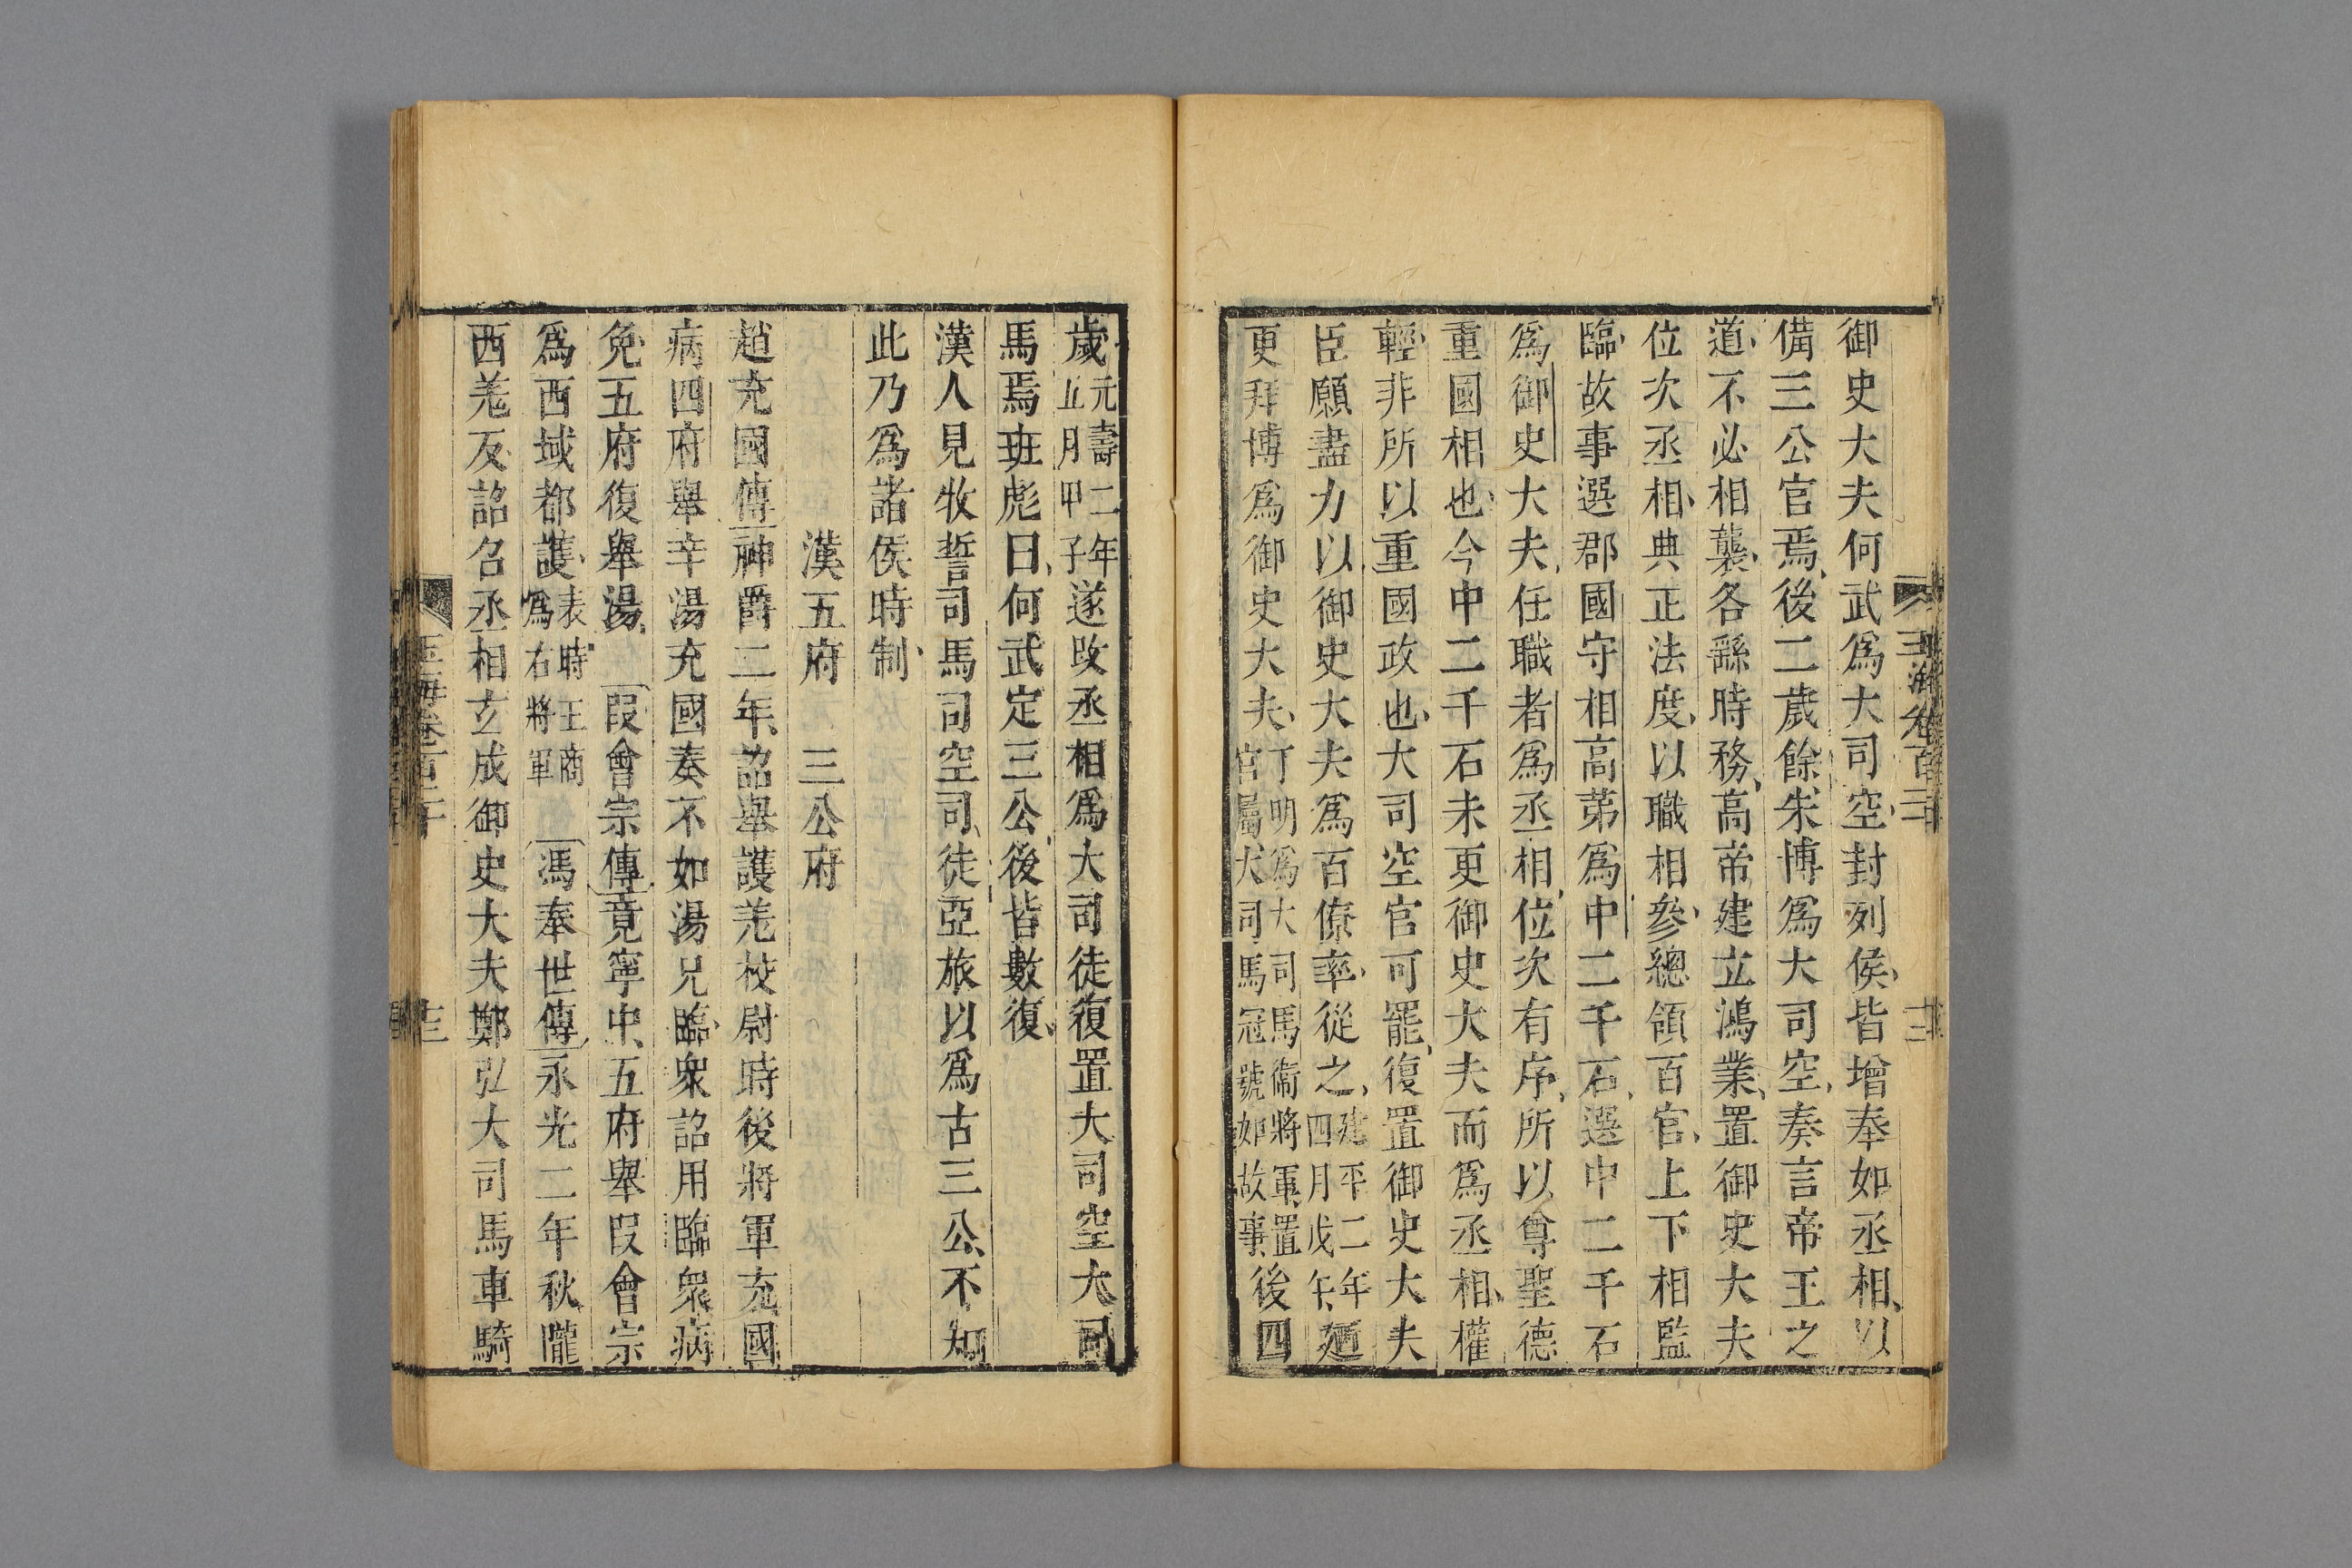 御史大夫何武爲大司空封列侯皆增奉如丞相以
備三公官焉後二歲餘朱博爲大司空奏言帝王之
道不必相襲各繇時務高帝建立鴻業置御史大夫
位次丞相典正法度以職相參總領百官上下相監
臨故事選郡國守相高第爲中二千石選中二千石
爲御史大夫任職者爲丞相位次有序所以尊聖德
重國相也今中二千石未更御史大夫而爲丞相權
輕非所以重國政也大司空官可罷復置御史大夫
臣願盡力以御史大夫爲百僚率從之建平二年四月戊午遷
更拜博爲御史大夫丁明爲大司馬衛將軍置官屬大司馬冠號如故事後四
歲元壽二年五月甲子遂改丞相爲大司徒復置大司空大司
馬焉班彪曰何武定三公後皆數復
漢人見牧誓司馬司空司徒亞旅以爲古三公不知
此乃爲諸侯時制
漢五府 三公府
趙充國傳神爵二年詔舉護羌校尉時後將軍充國
病四府舉辛湯充國奏不如湯兄臨衆詔用臨衆病
免五府復舉湯 段會宗傳竟寧中五府舉段會宗
爲西域都護表時王商爲右將軍 馮奉世傳永光二年秋隴
西羌反詔召丞相玄成御史大夫鄭弘大司馬車騎
玉海卷百二十